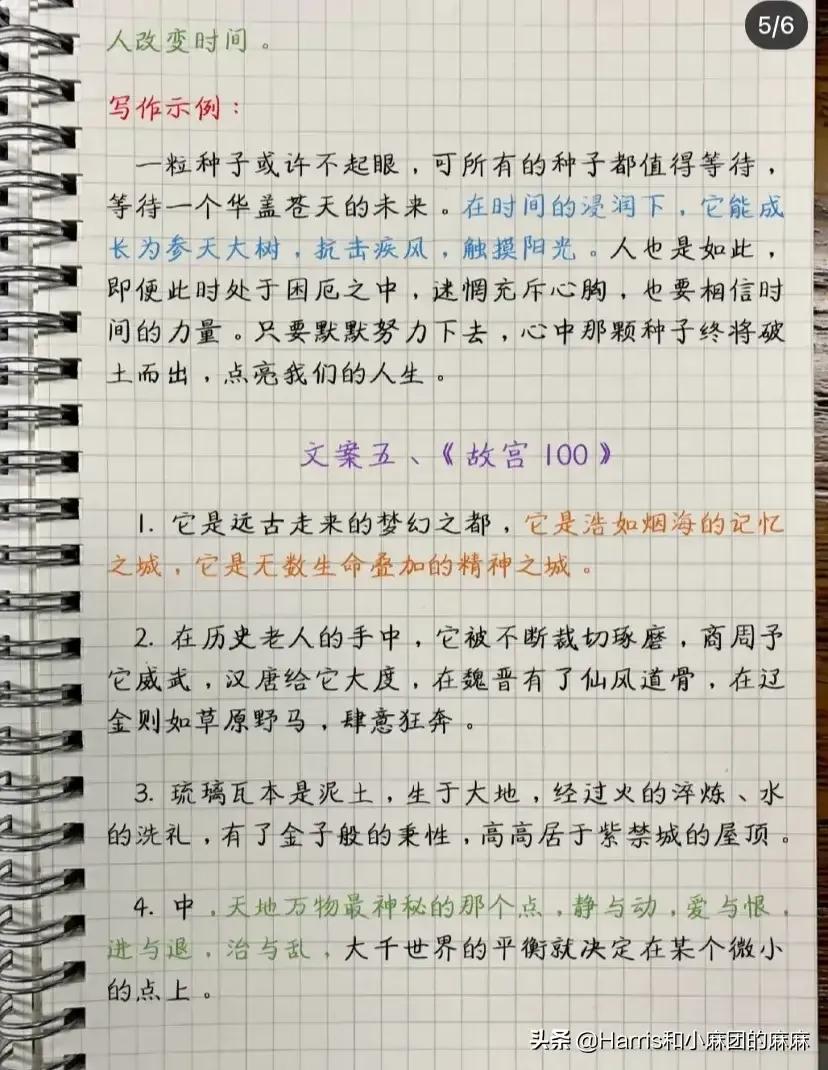 5/6
人改变时间。
写作示例：
一粒种子或许不起眼，可所有的种子都值得等待，
等待一个华盖苍天的未来。在时间的浸润下，它能成
长为参天大树，抗击疾风，触摸阳光。人也是如此，
即便此时处于困厄之中，迷惘充斥心胸，也要相信时
间的力量。只要默默努力下去，心中那颗种子终将破
土而出，点亮我们的人生。
文案五、《故宫100》
1. 它是远古走来的梦幻之都，它是浩如烟海的记忆
之城，它是无数生命叠加的精神之城。
2. 在历史老人的手中，它被不断裁切琢磨，商周予
它威武，汉唐给它大度，在魏晋有了仙风道骨，在辽
金则如草原野马，肆意狂奔。
3. 琉璃瓦本是泥土，生于大地，经过火的淬炼、水
的洗礼，有了金子般的秉性，高高居于紫禁城的屋顶。
4. 中，天地万物最神秘的那个点，静与动，爱与恨，
进与退，治与乱，大千世界的平衡就决定在某个微小
的点上。
头条 @Harris和小麻团的麻麻